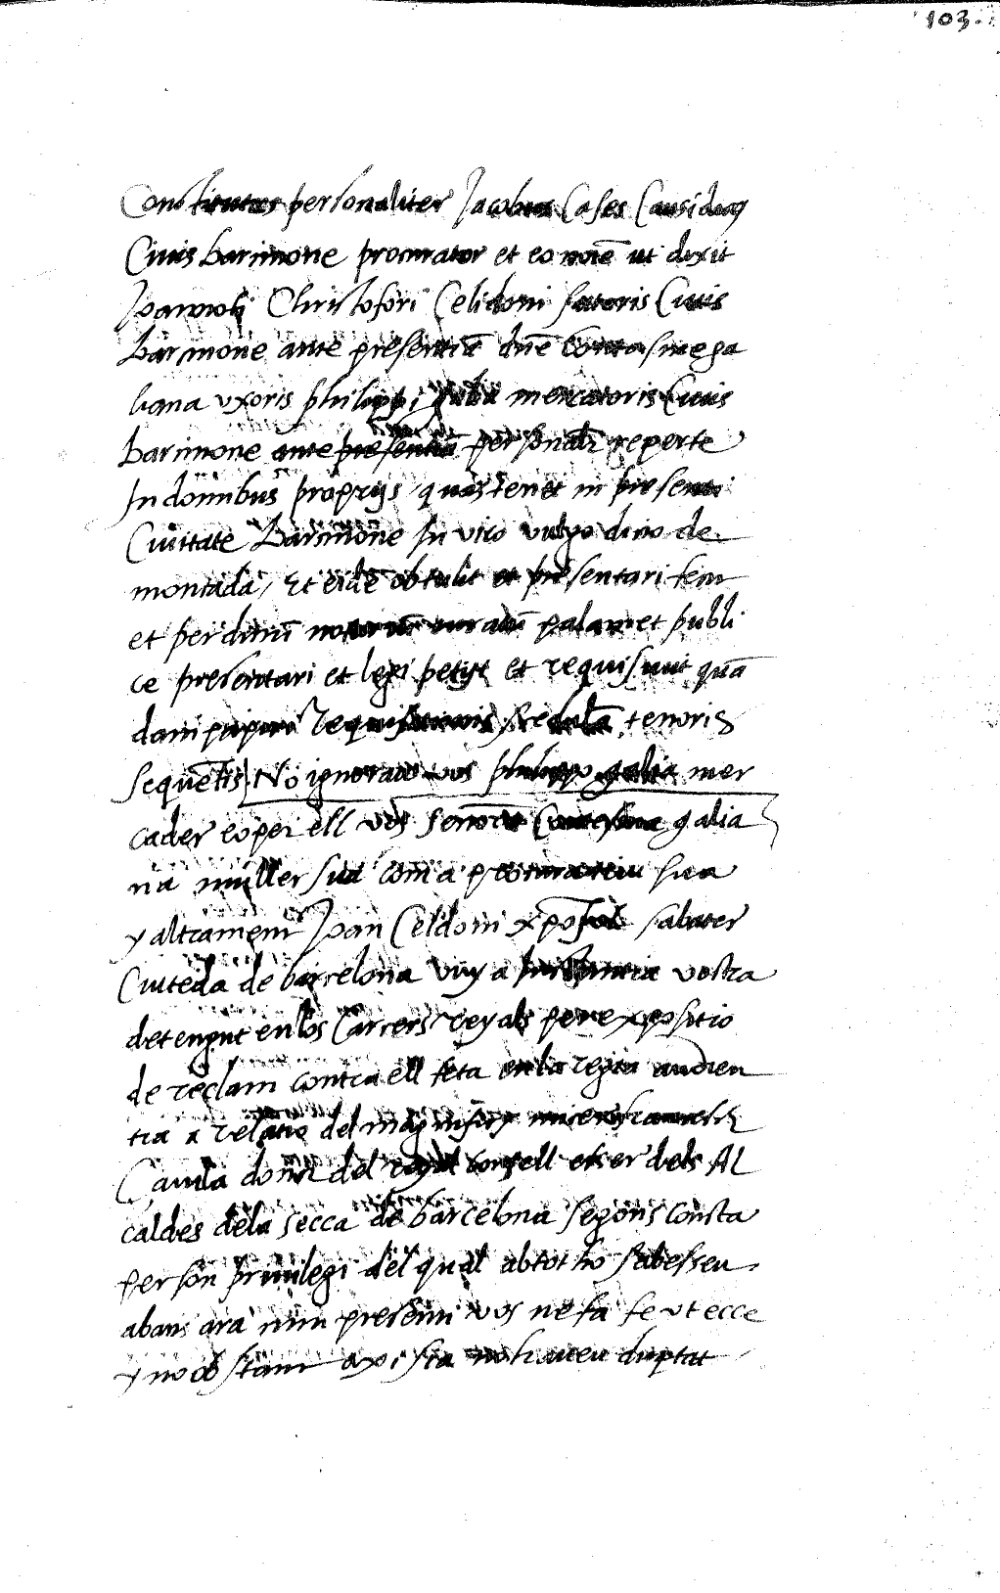 103.
Constitutus personaliter Jacobus Cases Causidicq
Ciuis barcinone procurator et eo noīe ut dixit
Joannoti Christofori Celidoni sutoris Ciuis
barcinone ante presentiā dnē Contesine ga
liana vxoris philippi galia mercatoris Ciuis
barcinone ante presentiā personalr reperte
In domibus proprijs quas tenet in presenti
Ciuitate Barcinone In vico vulgo dicto de
montada, Et eidē obtulit et presentari fecit
et per dictū notariū iuratū palam et publi
ce presentari et legi petijt et requisiuit quā
dam papiri requisitionis scedulā tenoris
Sequētis No ignorau vos philippo galia mer
cader eo per ell vos senora Contesina galia
na muller sua com a procuratriu sua
y altrament Joan Celdoni xpōfol sabater
Ciuteda de barcelona vuy a instantia vostra
detengut en los Carcers reyals per expositio
de reclam contra ell feta en la regia audien
tia a relatio del magnifich micer
 del reyal consell esser dels Al
caldes dela secca de barcelona segons consta
per son priuilegi del qual ab tot ho sabesseu
abans ara nun presenti vos ne fa fe vt ecce
y no obstant axo no haueu duptat